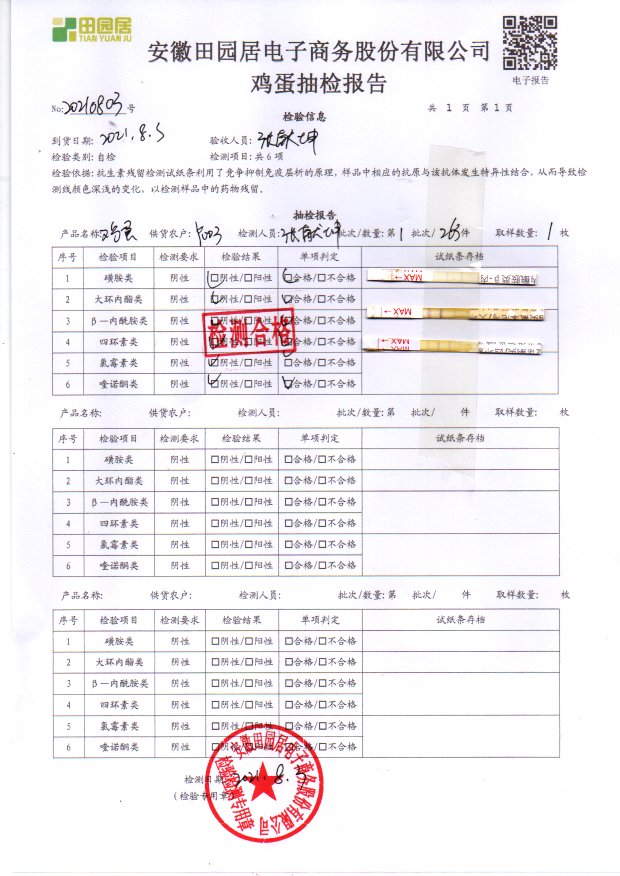 田园居
TIAN YUAN JU
安徽田园居电子商务股份有限公司
电子报告
鸡蛋抽检报告
No:20210803号
共 1 页 第 1 页
检验信息
到货日期: 2021.8.3
验收人员:
检验类别: 自检
检测项目: 共 6 项
检验依据: 抗生素残留检测试纸条利用了竞争抑制免疫层析的原理,样品中相应的抗原与该抗体发生特异性结合,从而导致检
测线颜色深浅的变化,以检测样品中的药物残留。
抽检报告
产品名称: 鸡蛋 供货农户: 检测人员: 批次/数量: 第 1 批次/ 263 件 取样数量: 1 枚
序号 检验项目 检测要求 检验结果 单项判定 试纸条存档
1 磺胺类 阴性 □阴性/□阳性 □合格/□不合格
MAX
2 大环内酯类 阴性 □阴性/□阳性 □合格/□不合格
3 β—内酰胺类 阴性 □阴性/□阳性 □合格/□不合格
MAX
检测合格
4 四环素类 阴性 □阴性/□阳性 □合格/□不合格
MAX
5 氯霉素类 阴性 □阴性/□阳性 □合格/□不合格
6 喹诺酮类 阴性 □阴性/□阳性 □合格/□不合格
产品名称: 供货农户: 检测人员: 批次/数量: 第 批次/ 件 取样数量: 枚
序号 检验项目 检测要求 检验结果 单项判定 试纸条存档
1 磺胺类 阴性 □阴性/□阳性 □合格/□不合格
2 大环内酯类 阴性 □阴性/□阳性 □合格/□不合格
3 β—内酰胺类 阴性 □阴性/□阳性 □合格/□不合格
4 四环素类 阴性 □阴性/□阳性 □合格/□不合格
5 氯霉素类 阴性 □阴性/□阳性 □合格/□不合格
6 喹诺酮类 阴性 □阴性/□阳性 □合格/□不合格
产品名称: 供货农户: 检测人员: 批次/数量: 第 批次/ 件 取样数量: 枚
序号 检验项目 检测要求 检验结果 单项判定 试纸条存档
1 磺胺类 阴性 □阴性/□阳性 □合格/□不合格
2 大环内酯类 阴性 □阴性/□阳性 □合格/□不合格
3 β—内酰胺类 阴性 □阴性/□阳性 □合格/□不合格
4 四环素类 阴性 □阴性/□阳性 □合格/□不合格
5 氯霉素类 阴性 □阴性/□阳性 □合格/□不合格
6 喹诺酮类 阴性 □阴性/□阳性 □合格/□不合格
检测日期: 2021.8.3
(检验专用章)
安徽田园居电子商务股份有限公司
检验检测专用章